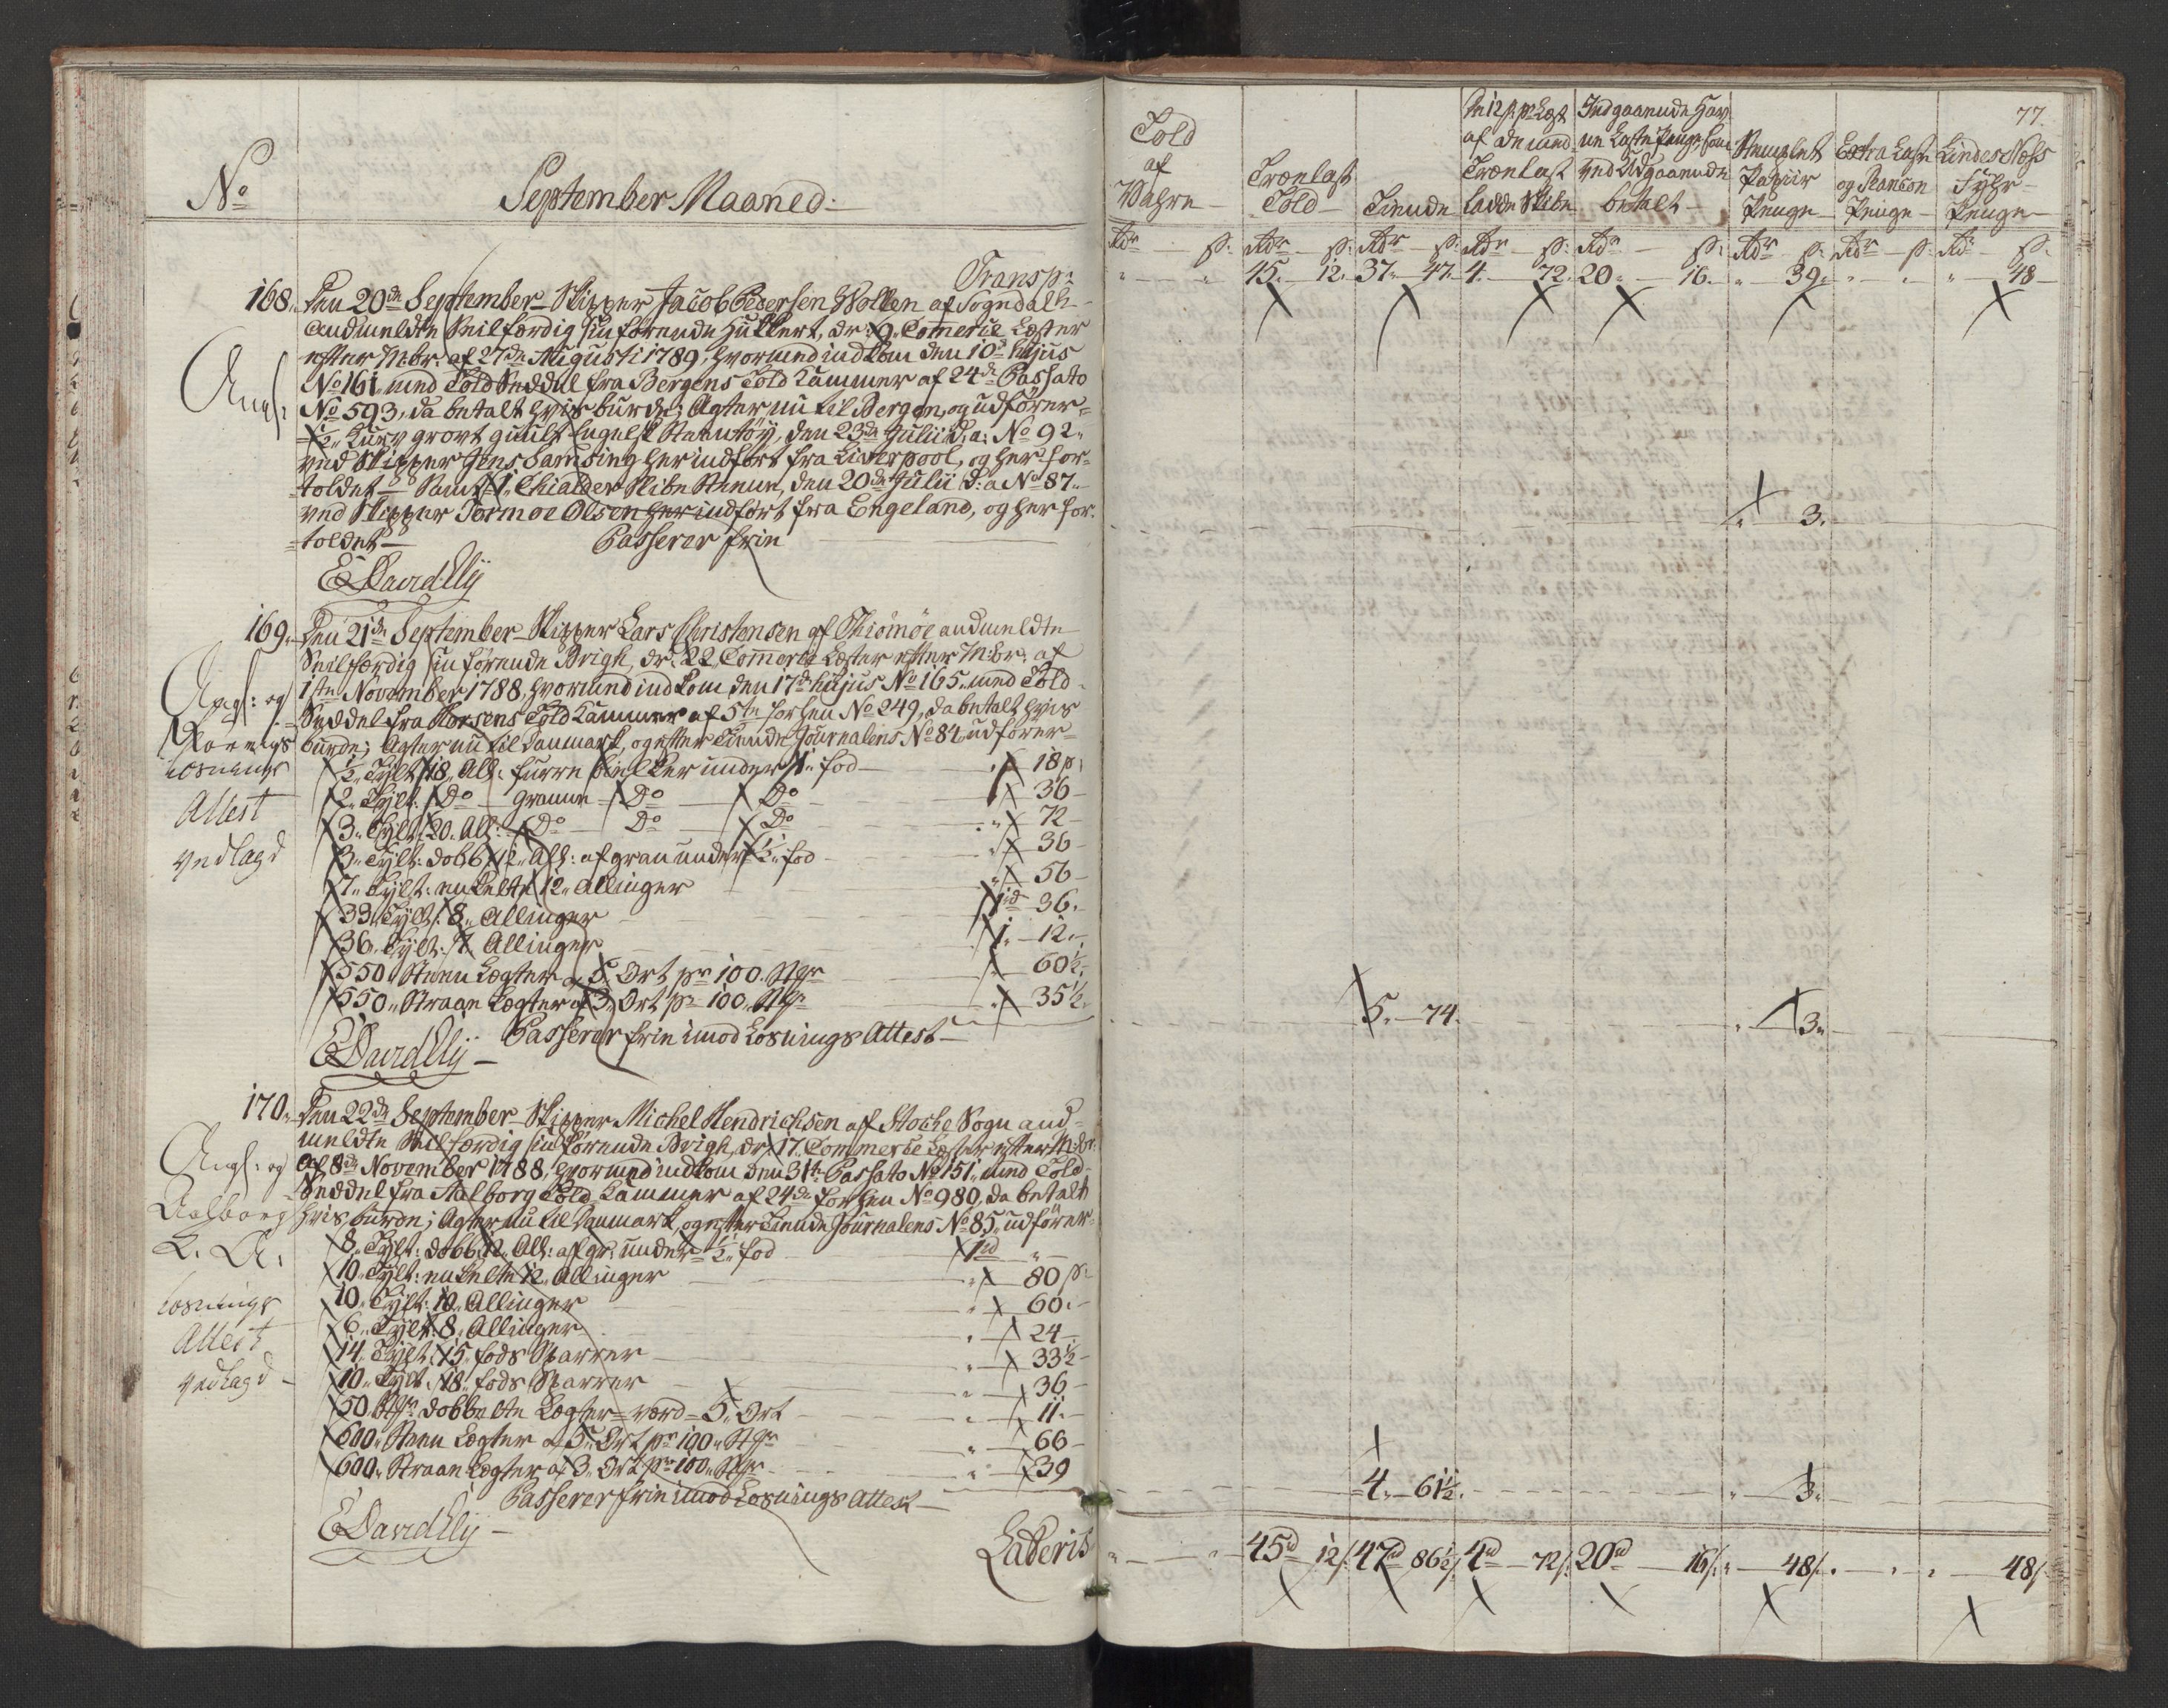 No
September Maaned
Transp:
168. Den 20de September Skipper Jacob Pedersen Wollen af Sogndahl
andmeldte Seilfærdig sin förende Huckert, dr: 9 Comerie Læster
efter Mbr: af 27de Augusti 1789, hvormed indkom den 10de hujus
No 161, med Told Seddel fra Bergens Told Kammer af 24de Passato
Angl:
No 593, da betalt hvis burde; Agter nu til Bergen, og udförer
1/2 Kurv grovt guult Engelsk Steentöy, den 23de Julii d: a: No 92
ved Skipper Jens Samsing her indfört fra Liverpool, og her for-
toldet – Samt 1 Chialder Slibe Steene, den 20de Julii d: a No 87
ved Skipper Tormoe Olsen her indfört fra Engeland, og her for-
toldet – Passerer frie
E Davidlly
169. Den 21de September Skipper Lars Christensen af Thiömöe andmeldte
Seilfærdig sin förende Brigh, dr: 22 Comerce Læster efter Mbr: af
1ste November 1788, hvormed indkom den 17de hujus No 165 med Told
Angl: og
Seddel fra Horsens Told Kammer af 5te forhen No 249, da betalt hvis
burde; Agter nu til Danmark, og efter Tiende Journalens No 84 udförer
Losnings
Attest
vedlagd
1/2 Tylt 18 All: furre Bielker under 1 fod 18 s:
2 Tylt Do granne Do Do 36
3 Tylt 20 All: Do Do Do 72
3 Tylt: dobb: 12 All: af gran under 1/2 fod 36
7 Tylt: enkelte 12 Allinger 56
33 Tylt: 8 Allinger 1 rd 36
36 Tylt: 7 Allinger 1 12
550 Steen Lægter a 5 Ort pr 100 Stkr 60 1/2
550 Straae Lægter a 3 Ort pr 100 Stkr 35 1/2
Passerer frie imod Losnings Attest
E Davidlly
170. Den 22de September Skipper Michel Hendrichsen af Stocke Sogn and-
meldte Seilfærdig sin förende Brigh, dr: 17 Commerce Læster efter Mbr:
af 8de November 1788, hvormed indkom den 31te Passato No 151, med Told
Angl: og
Seddel fra Aalborg Told Kammer af 24de forhen No 980, da betalt
Aalborg
hvis burde; Agter nu til Danmark, og efter Tiende Journalens No 85 udförer
L. A:
Losnings
Attest
vedlagd
8 Tylt: dobb: 12 All: af gr: under 1/2 fod 1 rd "
10 Tylt: enkelte 12 Allinger 80 s:
10 Tylt: 10 Allinger 60
6 Tylt: 8 Allinger 24
14 Tylt: 15 fods Sparrer 33 1/2
10 Tylt: 18 fods Sparrer 36
50 Stkr dobbelte Lægter værd 5 Ort 11
600 Steen Lægter a 5 Ort pr 100 Stkr 66
600 Straae Lægter a 3 Ort pr 100 Stkr 39
Passerer frie imod Losnings Attest
E Davidlly
Lateris
77
Told af Vahre
Trælast Told
Tiende
De 12 s: pr Læst af de med Trælast ladde Skibe
Indgaaende Hav- ne Laste Penge som ved Udgaaende betalt
Stemplet Papiir Penge
Extra Laste og Rancon Penge
Lindes Næss Fyhr Penge
Rdr s: Rdr s: Rdr s: Rdr s: Rdr s: Rdr s: Rdr s: Rdr s:
" " 45 12 37 47 4 72 20 16 " 39 " " " 48
" 3
5 74 " 3
4 61 1/2 " 3
" " 45rd 12 s 47rd 86 1/2 s 4rd 72 s 20rd 16 s " 48 s " " " 48 s